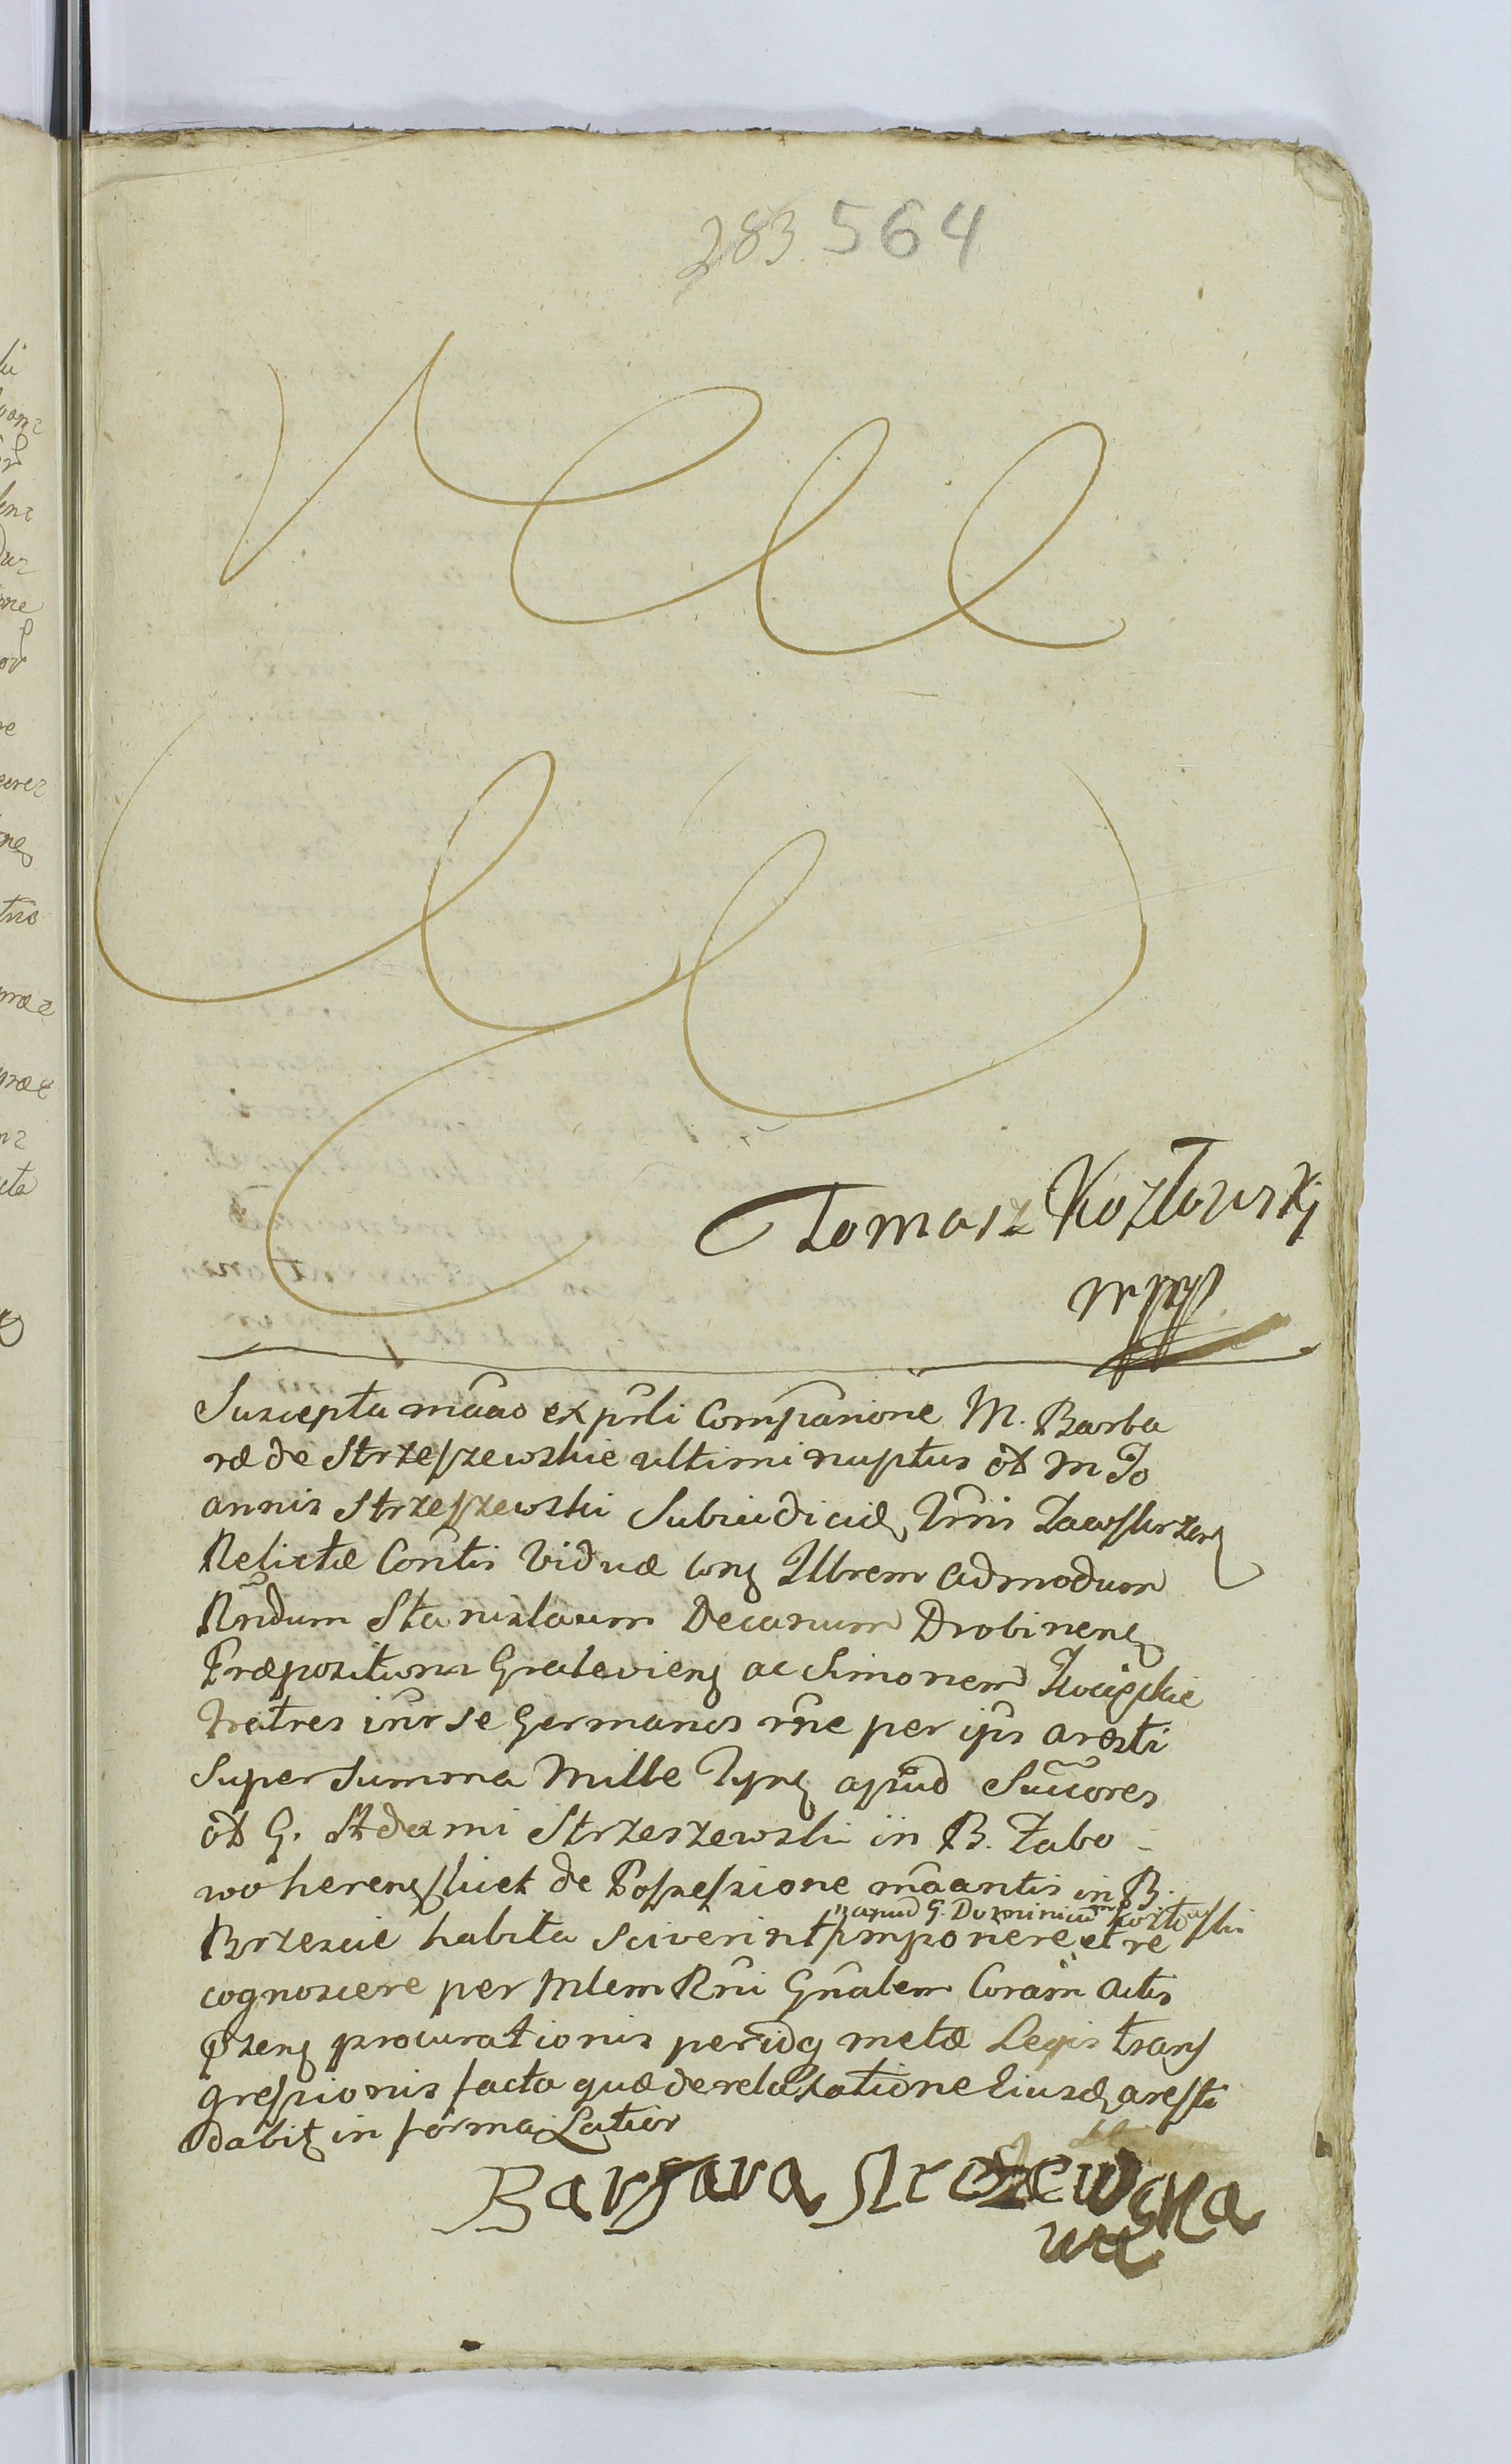 283. 564
Tomasz Kozłowskj
mpp
Suscepta mãao ex pñli Compãnione M. Barba
ræ de Strzeszewskie ultimi nuptus ol̃ M Jo
annis Strzeszewski Subiudicis Trris Zawskrzens
Relictæ Conñtis Viduæ cons Illrem Admodum
Rndum Stanislaum Decanum Drobinens
Præpositum Graleviens ac Simonem
fratres inr̃ se Germanos rñe per ips aresti
super summa Mille Tyns apud Succores
ol̃ G. Adami Strzeszewski in B. Zabo-
wo herens sliet de Possessione mãantis in B.
apud G. Dominicum Kozłowski
Brzescie habita sciverint imponere et re
cognoscere per Mlem Rñi Gñalem Coram Actis
Pzens procurationis per idq metæ Legis trans
gressionis facta quæ de relaxatione Eiusd aresti
dabit in forma Latior
Barbara Strzeszewska